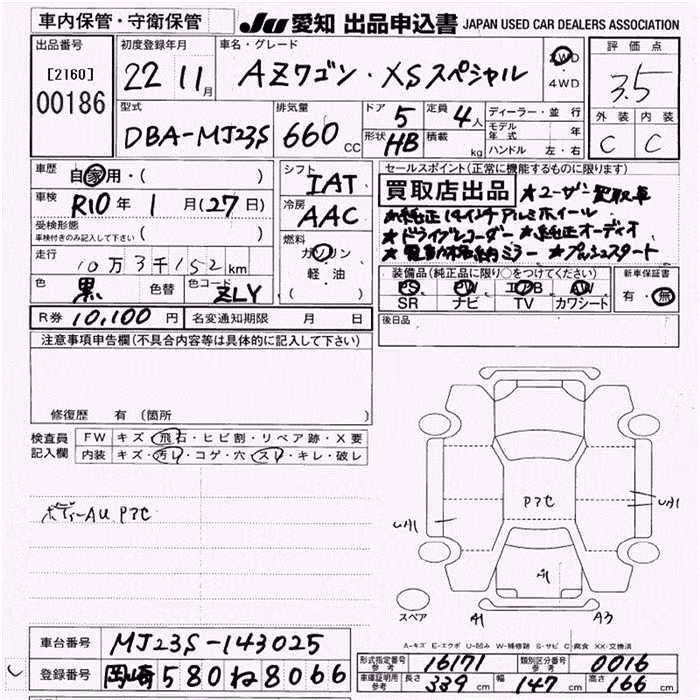 車内保管・守衛保管
JU 愛知 出品申込書 JAPAN USED CAR DEALERS ASSOCIATION
出品番号
[2160]
00186
初度登録年月
22 11月
車名・グレード
AZワゴン・XSスペシャル
2WD
・4WD
評価点
3.5
外装 内装
C C
型式
DBA-MJ23S
排気量
660cc
ドア 5
形状 HB
定員 4人
積載 kg
ディーラー・並行
モデル年式 年
ハンドル 左・右
車歴 自家用・( )
車検 R10年 1月(27日)
受検形態
車検付きのみ記入して下さい ( )
走行 10万3千152km
色 黒 色替 色コード ZLY
シフト IAT
冷房 AAC
燃料
ガソリン
軽・油
( )
セールスポイント(正常に機能するものに限ります)
買取店出品 ★ユーザー買取車
★純正14インチアルミホイール
★ドライブレコーダー ★純正オーディオ
★電動格納ミラー ★プッシュスタート
装備品(純正品に限り○をつけてください)
PS PW AB AW
SR ナビ TV カワシート
新車保証書
有・無
R券 10,100円 名変通知期限 月 日
後日品
注意事項申告欄(不具合内容等は具体的に記入して下さい)
修復歴 有(箇所 )
検査員記入欄
FW キズ・飛石・ヒビ割・リペア跡・X要
内装 キズ・汚レ・コゲ・穴・スレ・キレ・破レ
ボデーAU Pアセ
Pアセ
スペア
A1 A3
A-キズ E-エクボ U-凹み W-補修跡 S-サビ C-腐食 XX-交換済
車台番号 MJ23S-143025
登録番号 岡崎580ね8066
形式指定番号 参考 16171 類別区分番号 参考 0016
車庫証明用 参考 長さ 339cm 幅 147cm 高さ 166cm